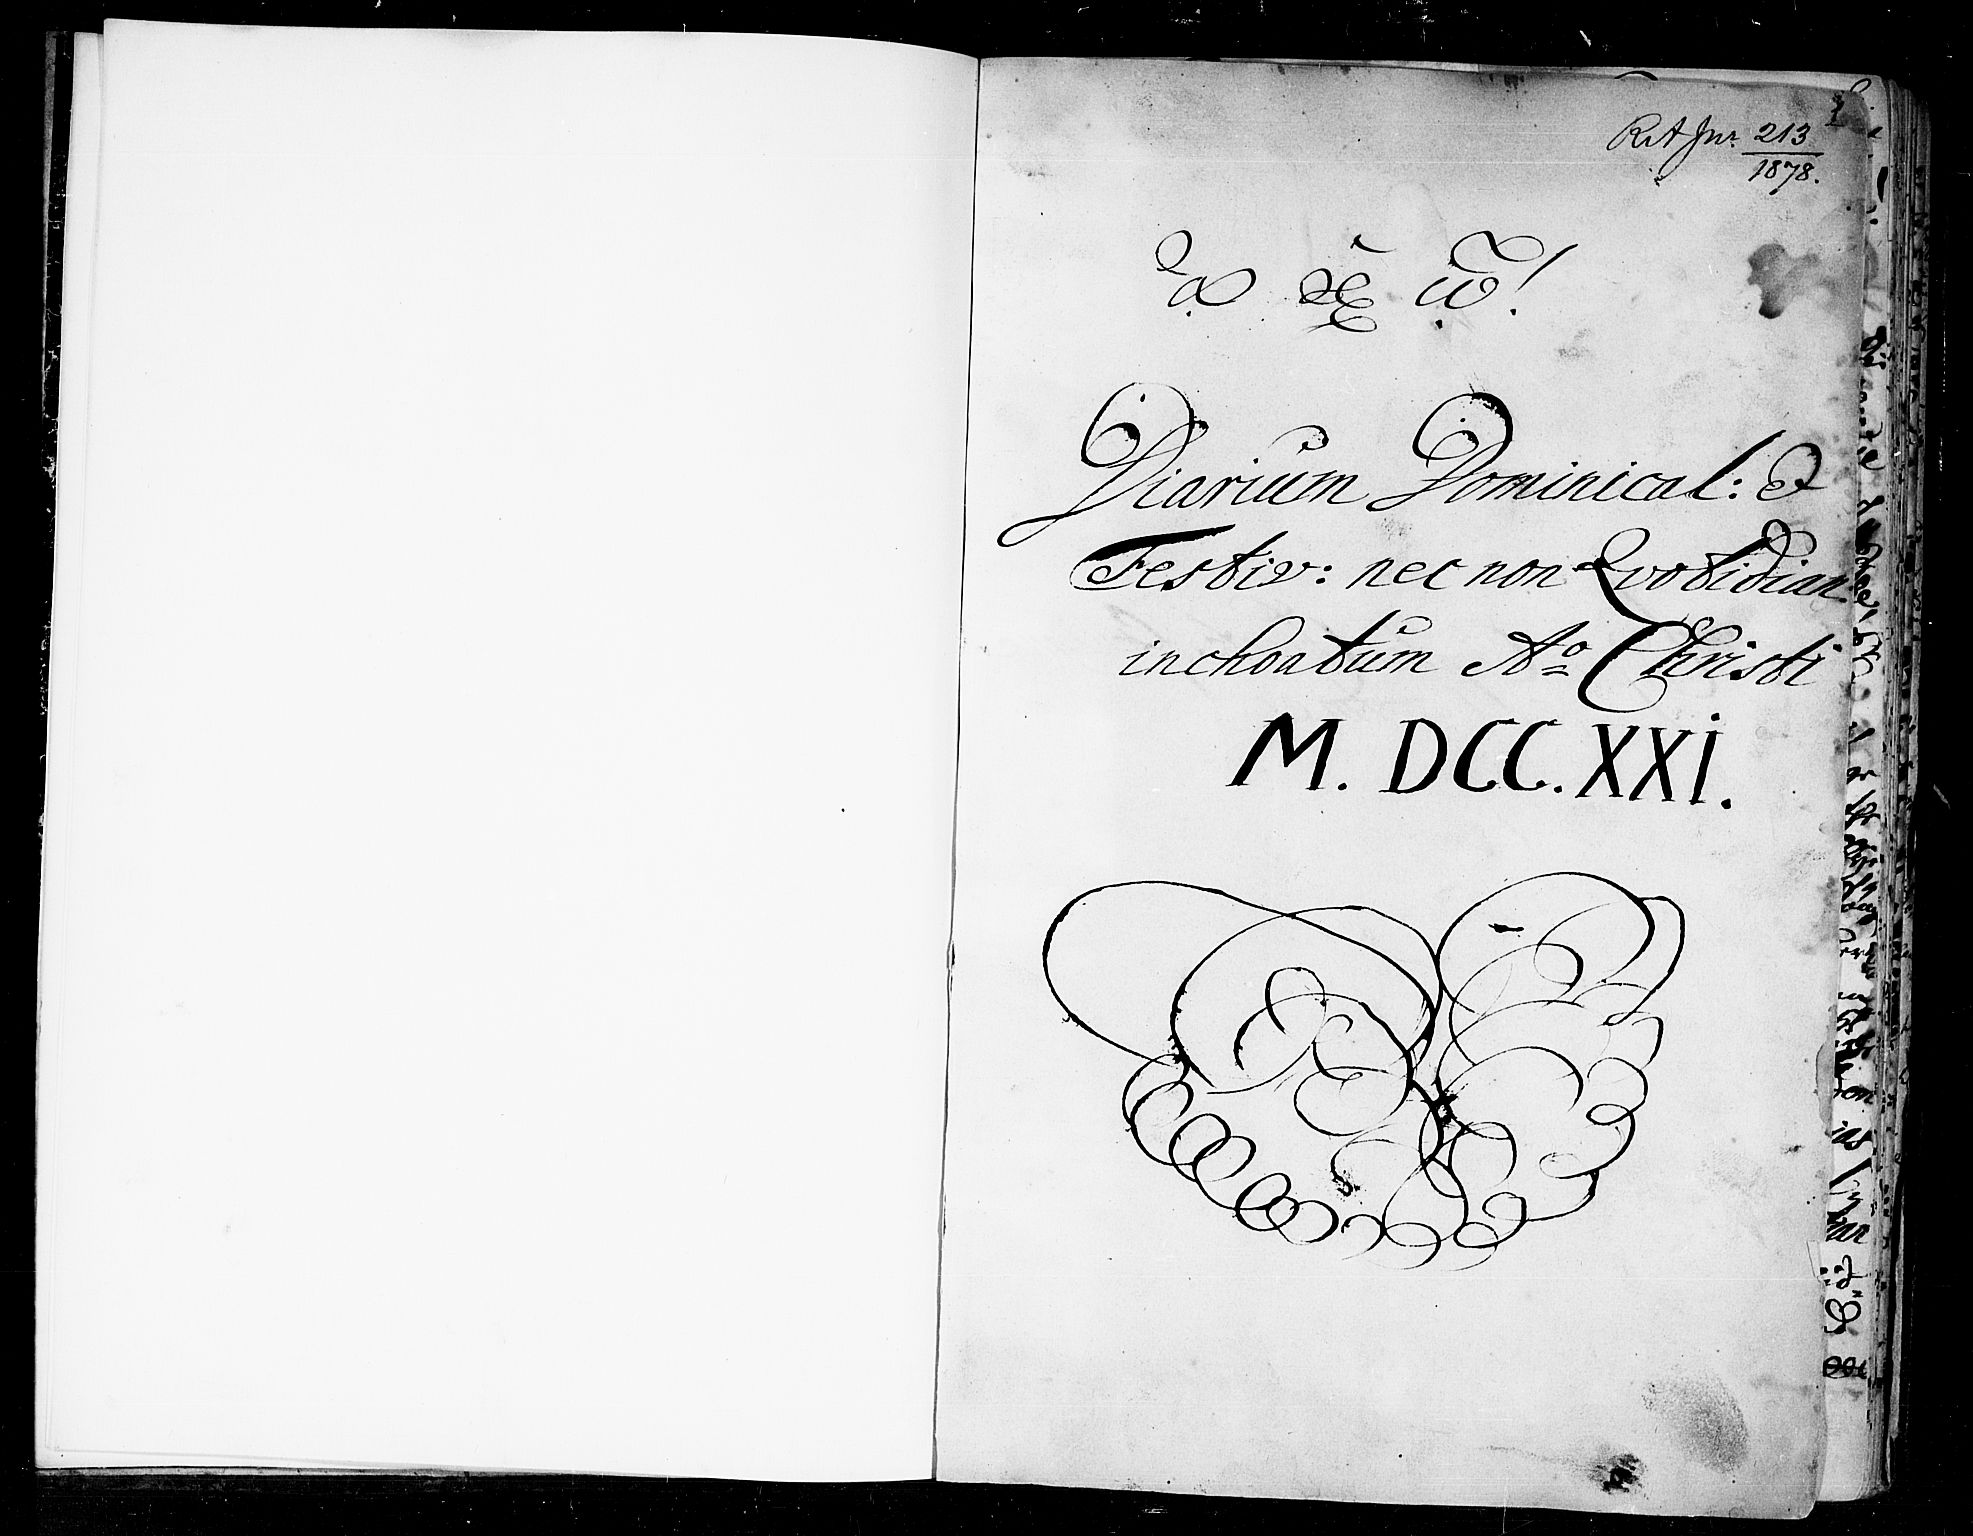 RA Jnr 213
1878.
Diarium Dominical: et
Festiv: nec non Qvotidian.
inchoatum Ao Christi
M. DCC. XXI.